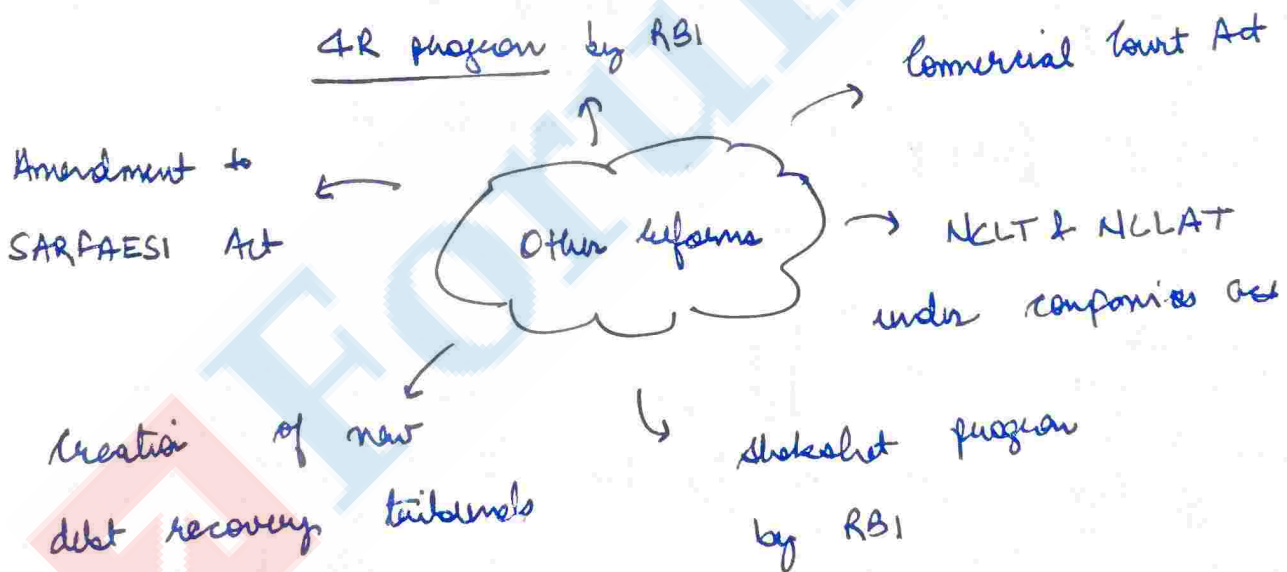 4R program by RBI
Commercial Court Act
Amendment to
SARFAESI Act
Other reforms
NCLT & NCLAT
under companies act
Creation of new
debt recovery tribunals
program
by RBI
Forum